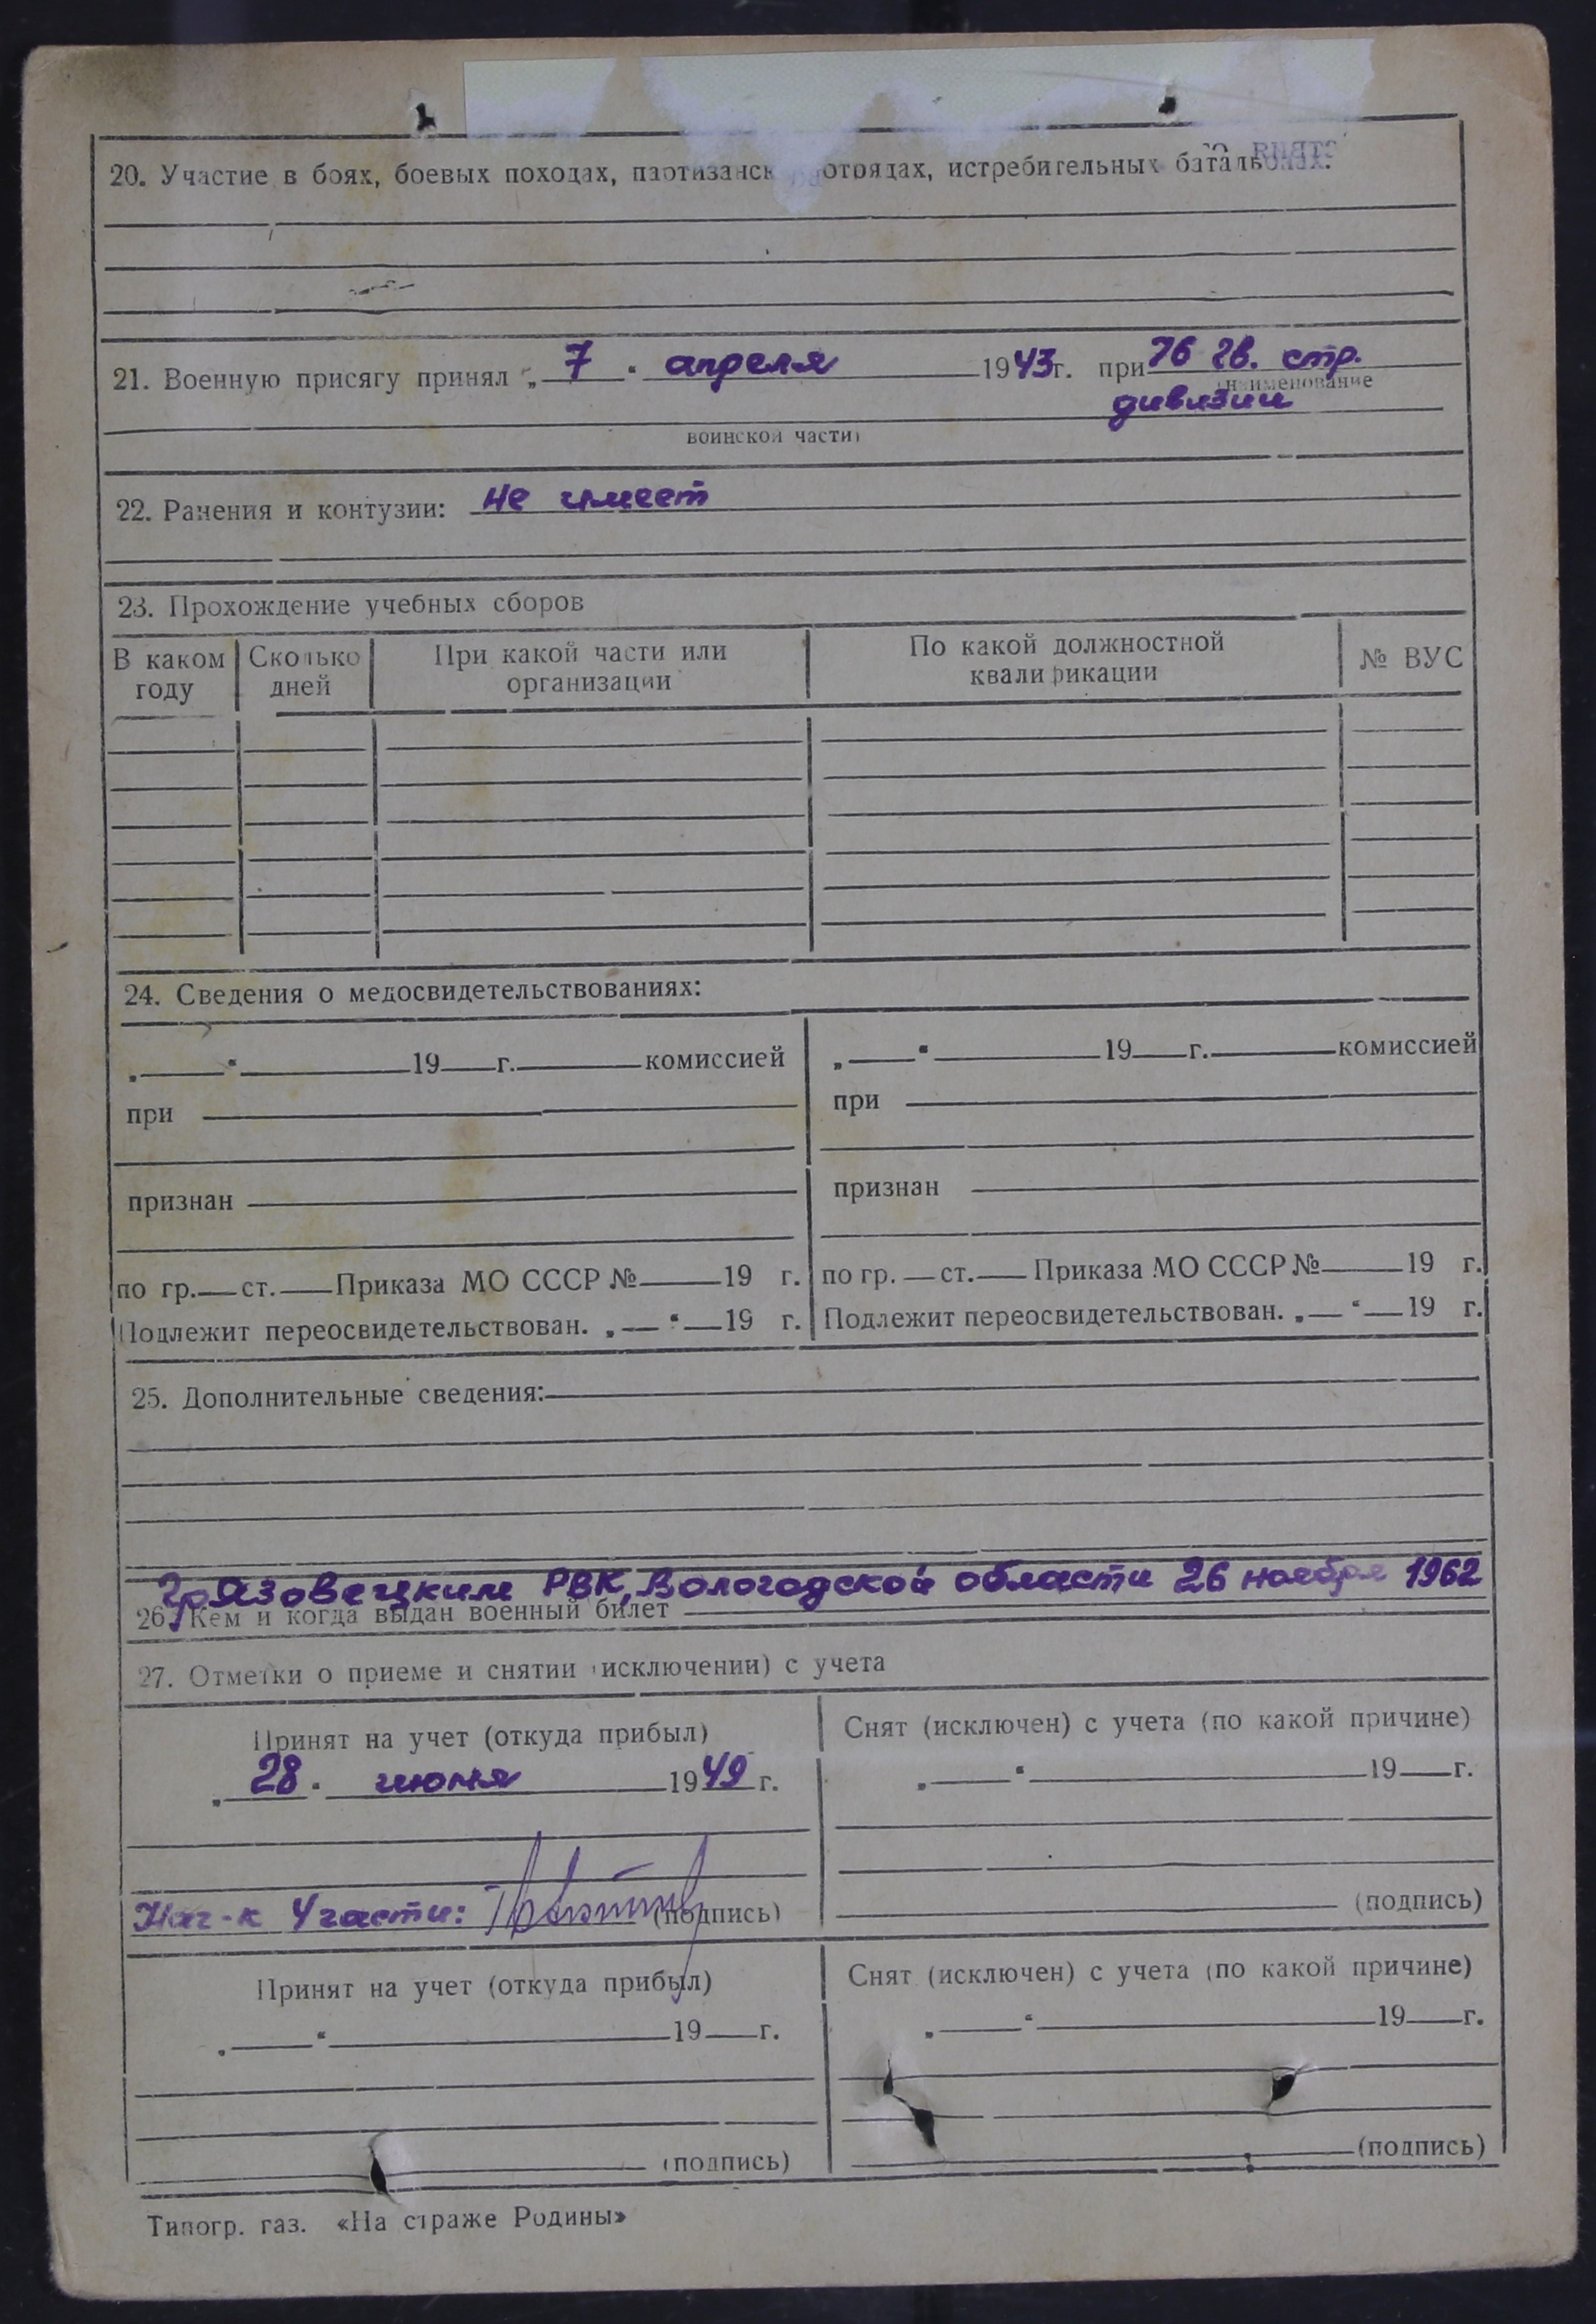 20. Участие в боях, боевых походах, партизанск отрядах, истребительных батальонах.
21. Военную присягу принял „ 7 “ апреля 1943г. при 76 гв. стр.
(наименование
дивизии
воинской части)
22. Ранения и контузии: не имеет
23. Прохождение учебных сборов
В каком году
Сколько дней
При какой части или организации
По какой должностной квалификации
№ ВУС
24. Сведения о медосвидетельствованиях:
„ “ 19 г. комиссией
при
признан
по гр. ст. Приказа МО СССР № 19 г.
Подлежит переосвидетельствован. „ “ 19 г.
„ “ 19 г. комиссией
при
признан
по гр. ст. Приказа МО СССР № 19 г.
Подлежит переосвидетельствован. „ “ 19 г.
25. Дополнительные сведения:
Грязовецким РВК, Вологодской области 26 ноября 1962
26. Кем и когда выдан военный билет
27. Отметки о приеме и снятии (исключении) с учета
Принят на учет (откуда прибыл)
„ 28 “ июня 1949 г.
Нач-к 4 части: (подпись)
Снят (исключен) с учета (по какой причине)
„ “ 19 г.
(подпись)
Принят на учет (откуда прибыл)
„ “ 19 г.
(подпись)
Снят (исключен) с учета (по какой причине)
„ “ 19 г.
(подпись)
Типогр. газ. «На страже Родины»